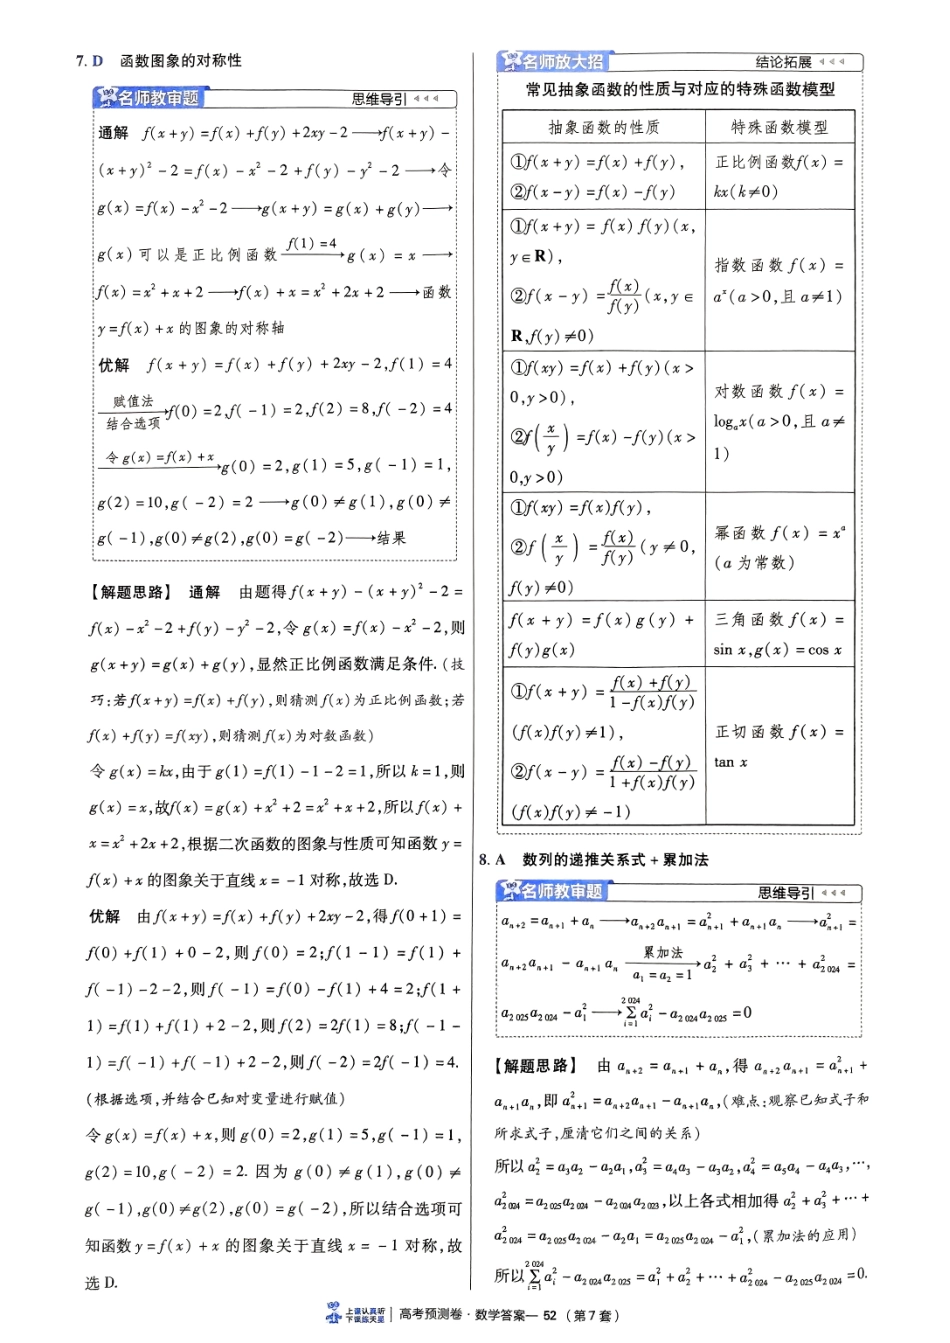 7. D 函数图象的对称性
名师教审题 思维导引
通解 f(x+y)=f(x)+f(y)+2xy-2→f(x+y)-
(x+y)²-2=f(x)-x²-2+f(y)-y²-2→令
g(x)=f(x)-x²-2→g(x+y)=g(x)+g(y)→
g(x)可以是正比例函数 f(1)=4→g(x)=x→
f(x)=x²+x+2→f(x)+x=x²+2x+2→函数
y=f(x)+x的图象的对称轴
优解 f(x+y)=f(x)+f(y)+2xy-2,f(1)=4
赋值法 结合选项→f(0)=2,f(-1)=2,f(2)=8,f(-2)=4
令g(x)=f(x)+x→g(0)=2,g(1)=5,g(-1)=1,
g(2)=10,g(-2)=2→g(0)≠g(1),g(0)≠
g(-1),g(0)≠g(2),g(0)=g(-2)→结果
【解题思路】 通解 由题得f(x+y)-(x+y)²-2=
f(x)-x²-2+f(y)-y²-2,令g(x)=f(x)-x²-2,则
g(x+y)=g(x)+g(y),显然正比例函数满足条件.(技
巧:若f(x+y)=f(x)+f(y),则猜测f(x)为正比例函数;若
f(x)+f(y)=f(xy),则猜测f(x)为对数函数)
令g(x)=kx,由于g(1)=f(1)-1-2=1,所以k=1,则
g(x)=x,故f(x)=g(x)+x²+2=x²+x+2,所以f(x)+
x=x²+2x+2,根据二次函数的图象与性质可知函数y=
f(x)+x的图象关于直线x=-1对称,故选D.
优解 由f(x+y)=f(x)+f(y)+2xy-2,得f(0+1)=
f(0)+f(1)+0-2,则f(0)=2;f(1-1)=f(1)+
f(-1)-2-2,则f(-1)=f(0)-f(1)+4=2;f(1+
1)=f(1)+f(1)+2-2,则f(2)=2f(1)=8;f(-1-
1)=f(-1)+f(-1)+2-2,则f(-2)=2f(-1)=4.
(根据选项,并结合已知对变量进行赋值)
令g(x)=f(x)+x,则g(0)=2,g(1)=5,g(-1)=1,
g(2)=10,g(-2)=2.因为g(0)≠g(1),g(0)≠
g(-1),g(0)≠g(2),g(0)=g(-2),所以结合选项可
知函数y=f(x)+x的图象关于直线x=-1对称,故
选D.
名师放大招 结论拓展
常见抽象函数的性质与对应的特殊函数模型
抽象函数的性质 特殊函数模型
①f(x+y)=f(x)+f(y), 正比例函数f(x)=
②f(x-y)=f(x)-f(y) kx(k≠0)
①f(x+y)=f(x)f(y)(x,
y∈R), 指数函数f(x)=
②f(x-y)=f(x)/f(y)(x,y∈ aˣ(a>0,且a≠1)
R,f(y)≠0)
①f(xy)=f(x)+f(y)(x>
0,y>0), 对数函数f(x)=
②f(x/y)=f(x)-f(y)(x> logₐx(a>0,且a≠
0,y>0) 1)
①f(xy)=f(x)f(y),
②f(x/y)=f(x)/f(y)(y≠0, 幂函数f(x)=xᵃ
f(y)≠0) (a为常数)
f(x+y)=f(x)g(y)+ 三角函数f(x)=
f(y)g(x) sin x,g(x)=cos x
①f(x+y)=(f(x)+f(y))/(1-f(x)f(y))
(f(x)f(y)≠1), 正切函数f(x)=
②f(x-y)=(f(x)-f(y))/(1+f(x)f(y)) tan x
(f(x)f(y)≠-1)
8. A 数列的递推关系式+累加法
名师教审题 思维导引
aₙ₊₂=aₙ₊₁+aₙ→aₙ₊₂aₙ₊₁=a²ₙ₊₁+aₙ₊₁aₙ→a²ₙ₊₁=
aₙ₊₂aₙ₊₁-aₙ₊₁aₙ 累加法 a₁=a₂=1→a₂²+a₃²+⋯+a²₂₀₂₄=
a₂₀₂₅a₂₀₂₄-a₁²→∑(i=1→2024)aᵢ²-a₂₀₂₄a₂₀₂₅=0
【解题思路】 由aₙ₊₂=aₙ₊₁+aₙ,得aₙ₊₂aₙ₊₁=a²ₙ₊₁+
aₙ₊₁aₙ,即a²ₙ₊₁=aₙ₊₂aₙ₊₁-aₙ₊₁aₙ,(难点:观察已知式子和
所求式子,厘清它们之间的关系)
所以a₂²=a₃a₂-a₂a₁,a₃²=a₄a₃-a₃a₂,a₄²=a₅a₄-a₄a₃,⋯,
a²₂₀₂₄=a₂₀₂₅a₂₀₂₄-a₂₀₂₄a₂₀₂₃,以上各式相加得a₂²+a₃²+⋯+
a²₂₀₂₄=a₂₀₂₅a₂₀₂₄-a₂a₁=a₂₀₂₅a₂₀₂₄-a₁²,(累加法的应用)
所以∑(i=1→2024)aᵢ²-a₂₀₂₄a₂₀₂₅=a₁²+a₂²+⋯+a²₂₀₂₄-a₂₀₂₅a₂₀₂₄=0.
上课认真听 下课练天星 高考预测卷·数学答案—52(第7套)